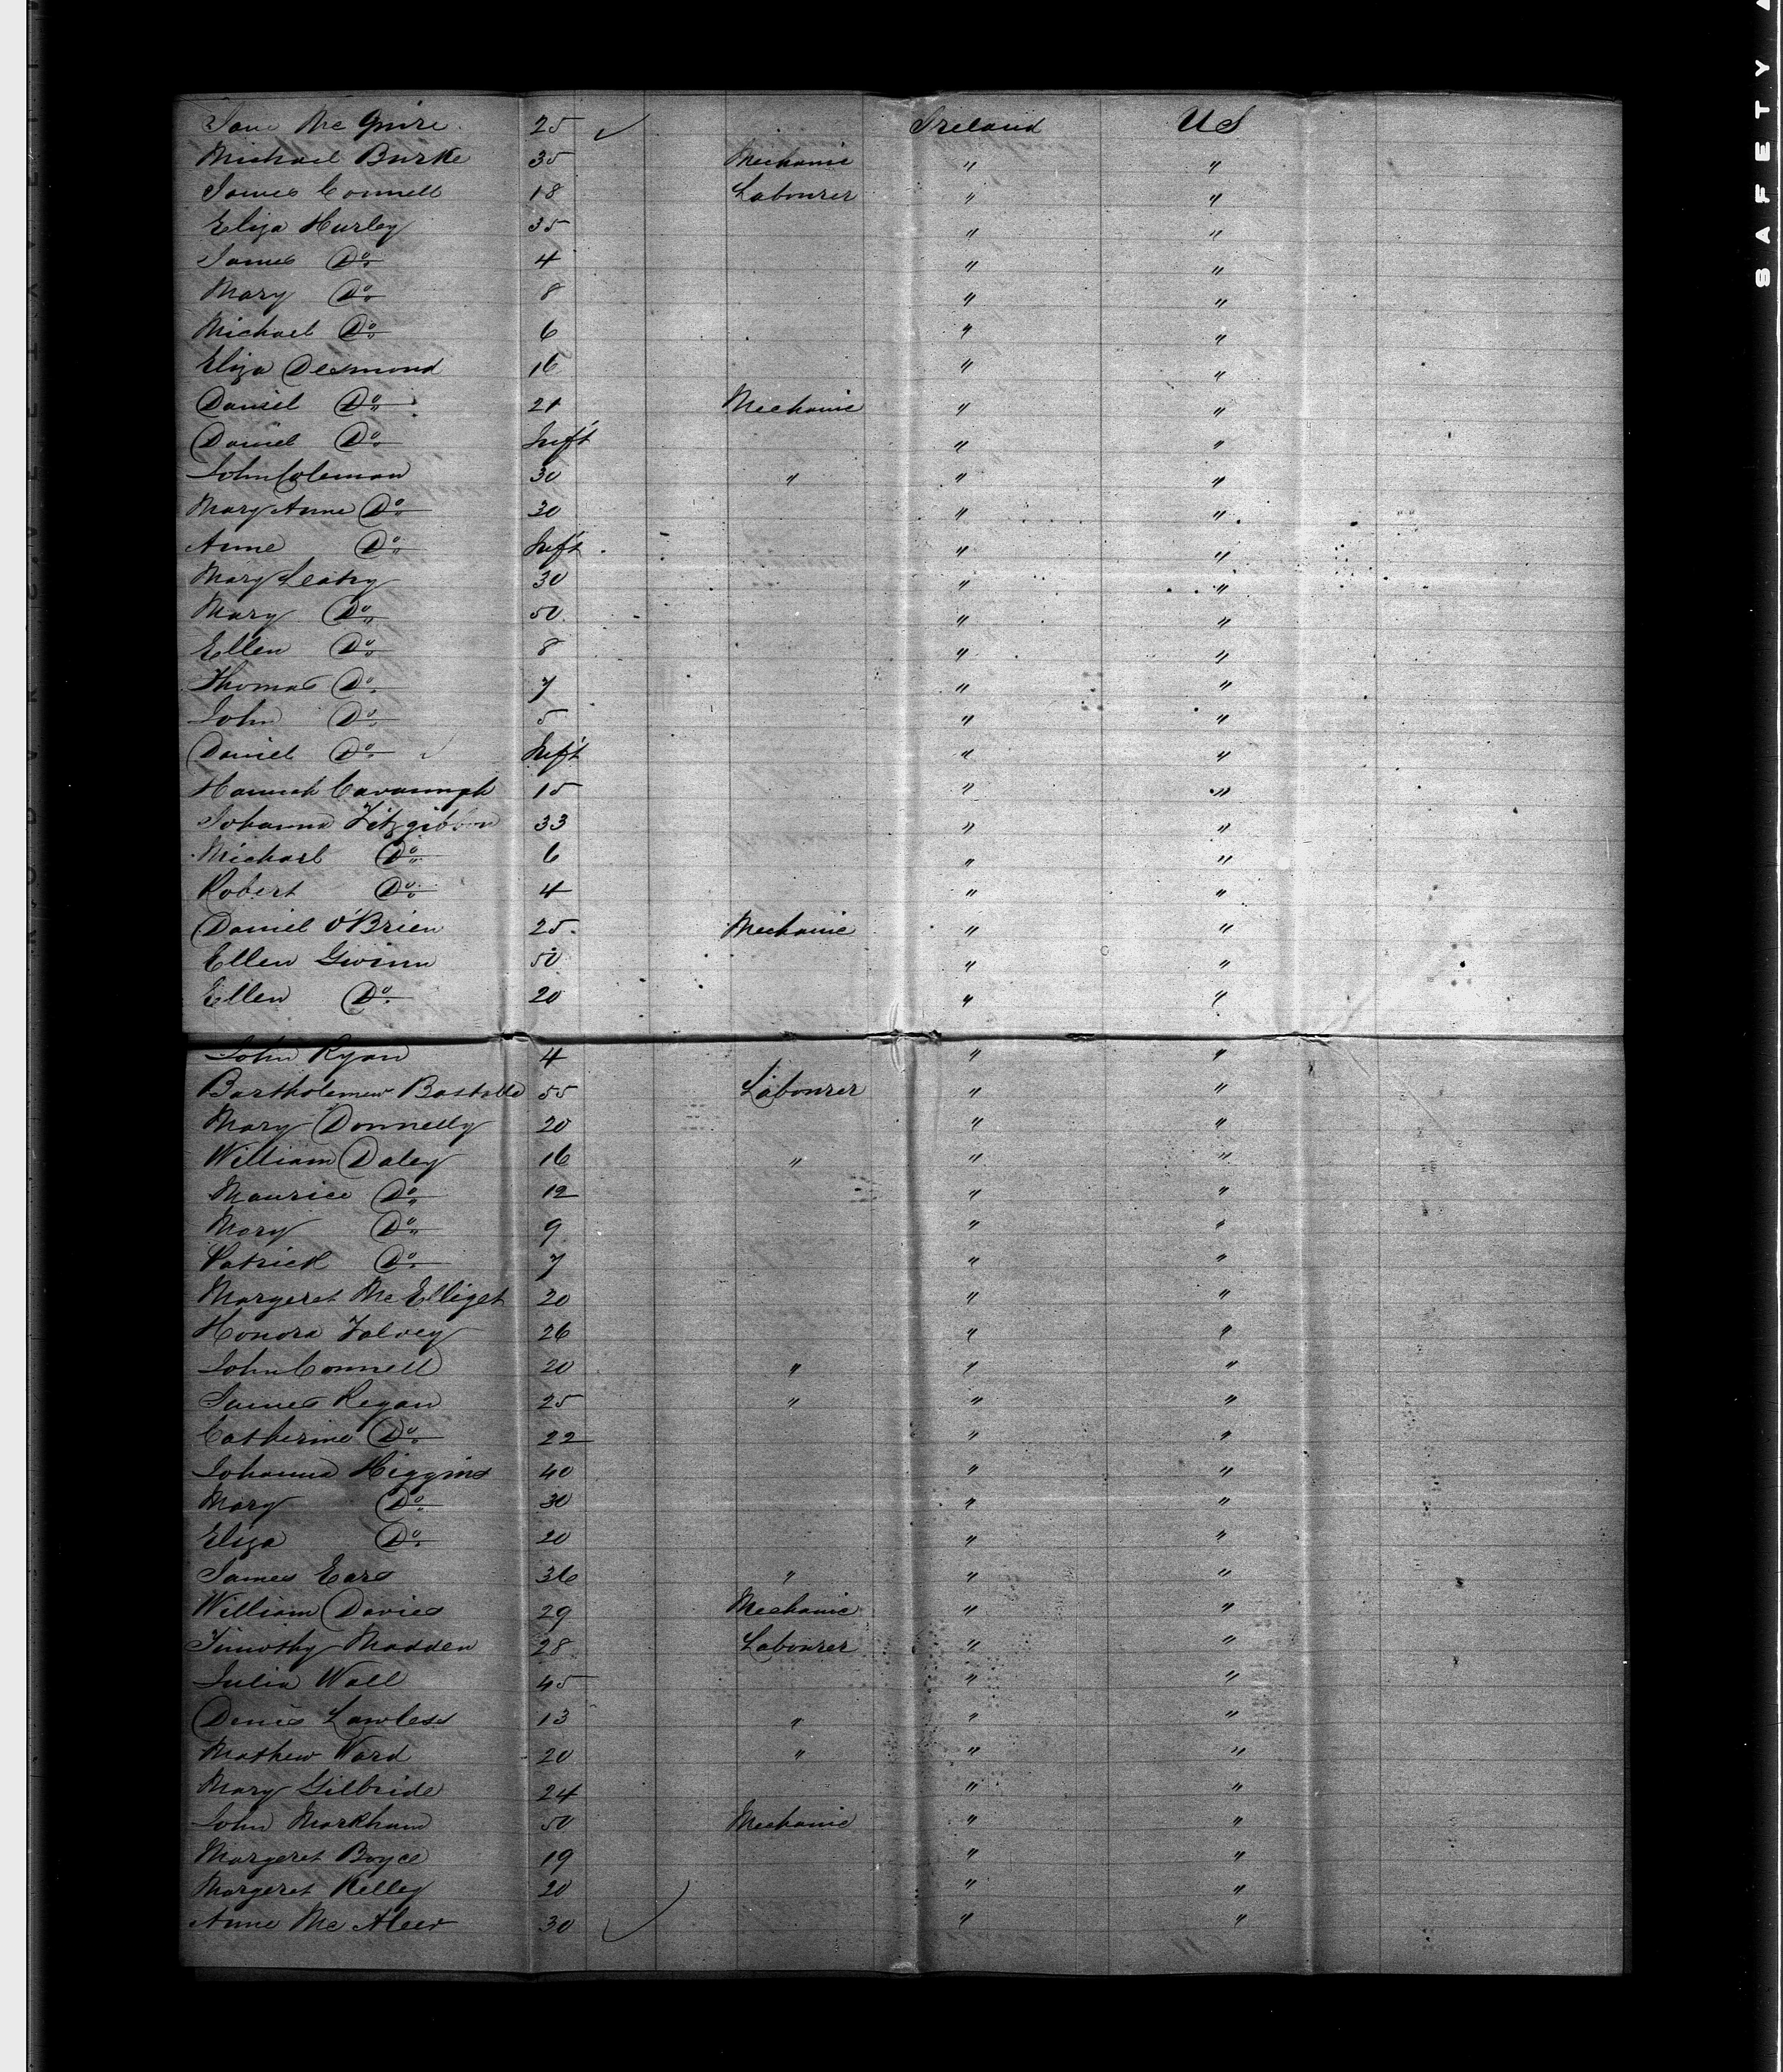 Jane Mc Guire 25 Ireland US
Michael Burke 35 Mechanic " "
James Connell 18 Labourer " "
Eliza Hurley 35 " "
James Do 4 " "
Mary Do 8 " "
Michael Do 6 " "
Eliza Desmond 16 " "
Daniel Do 21 Mechanic " "
Daniel Do Inft " "
John Coleman 30 " " "
Mary Anne Do 30 " "
Anne Do Inft " "
Mary Leahy 30 " "
Mary Do 50 " "
Ellen Do 8 " "
Thomas Do 7 " "
John Do 5 " "
Daniel Do Inft " "
Hannah Cavanngh 15 " "
Johanna Fitzgibbon 33 " "
Michael Do 6 " "
Robert Do 4 " "
Daniel O'Brien 25 Mechanic " "
Ellen Gwinn 50 " "
Ellen Do 20 " "
John Ryan 4 " "
Bartholemew 55 Labourer " "
Mary Donnelly 20 " "
William Daley 16 " " "
Maurice Do 12 " "
Mary Do 9 " "
Patrick Do 7 " "
Margeret Mc Elliget 20 " "
Honora Falvey 26 " "
John Connell 20 " " "
James Regan 25 " " "
Catherine Do 22 " "
Johanna Higgins 40 " "
Mary Do 30 " "
Eliza Do 20 " "
James Ears 36 " " "
William Davies 29 Mechanic " "
Timothy Madden 28 Labourer " "
Julia Wall 45 " "
Denis Lawless 13 " " "
Mathew Ward 20 " " "
Mary Gilbride 24 " "
John Markham 50 Mechanic " "
Margeret Boyce 19 " "
Margeret Kelley 20 " "
Anne Mc Aleer 30 " "
SAFETY